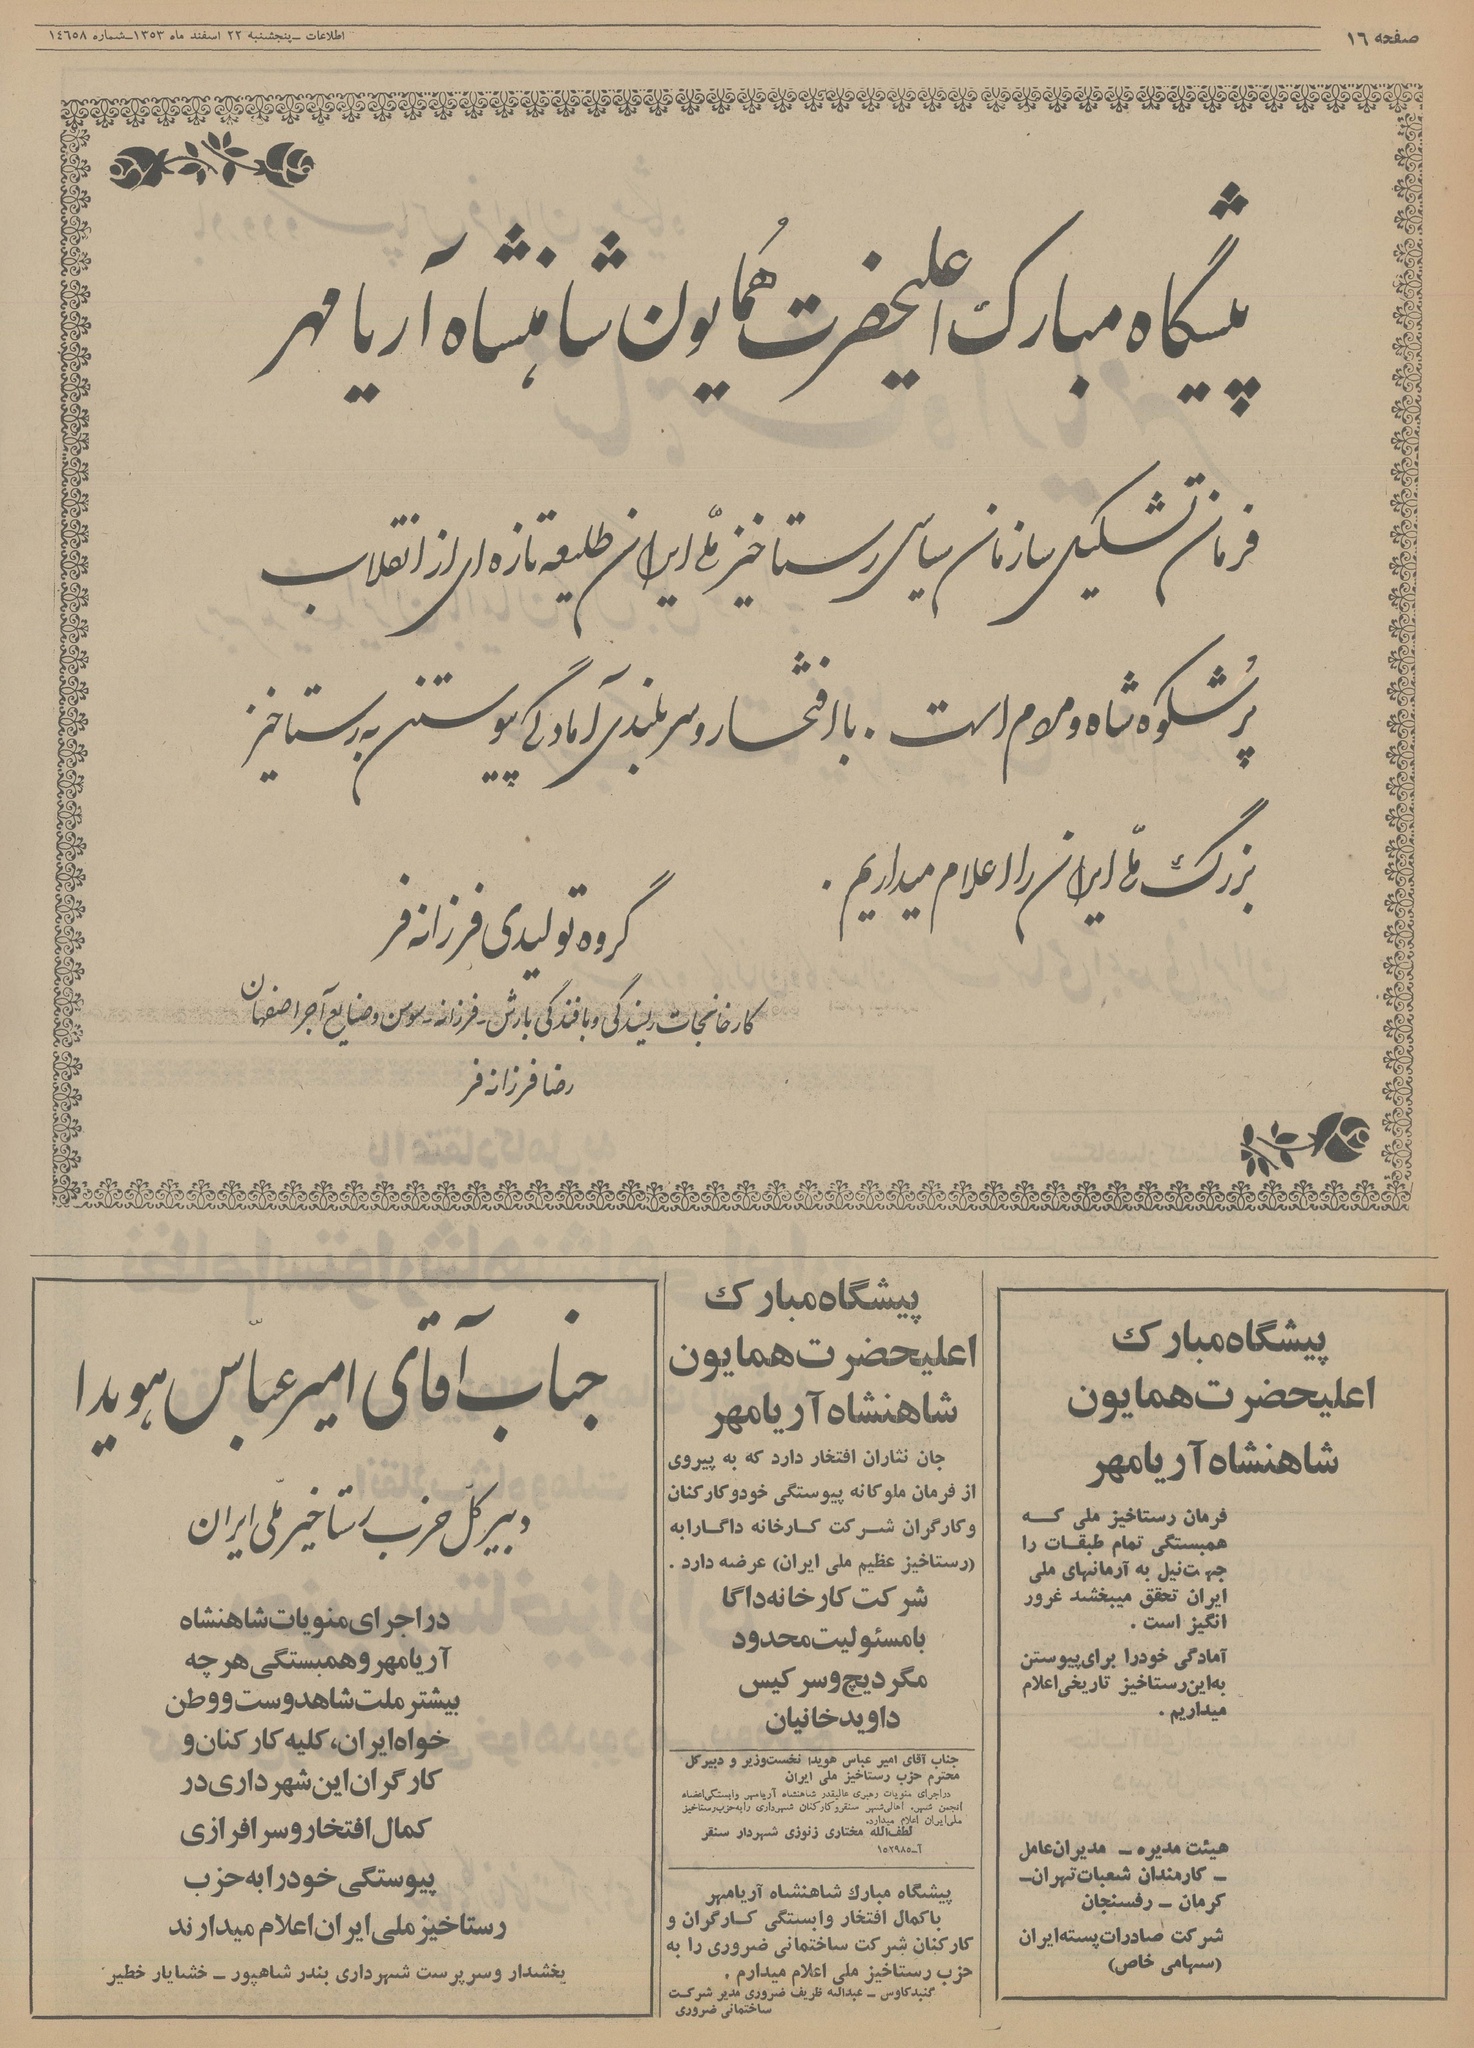 صفحه ١٦
اطلاعات ـ پنجشنبه ٢٢ اسفند ماه ١٣٥٣ـ شماره ١٤٦٥٨
پیشگاه مبارک اعلیحضرت همایون شاهنشاه آریامهر
فرمان تشکیل سازمان سیاسی رستاخیز ملّی ایران طلیعه تازه ای از انقلاب
پُرشکوه شاه و مردم است . با افتخار و سربلندی آمادگی پیوستن به رستاخیز
بزرگ ملّی ایران را اعلام میداریم .
گروه تولیدی فرزانه فر
کارخانجات ریسندگی و بافندگی بارش ـ فرزانه ـ سوسن و صنایع آجر اصفهان
رضا فرزانه فر
پیشگاه مبارک
اعلیحضرت همایون
شاهنشاه آریامهر
فرمان رستاخیز ملی که
همبستگی تمام طبقات را
جهت نیل به آرمانهای ملی
ایران تحقق میبخشد غرور
انگیز است .
آمادگی خودرا برای پیوستن
به این رستاخیز تاریخی اعلام
میداریم .
هیئت مدیره ـ مدیران عامل
ـ کارمندان شعبات تهران ـ
کرمان ـ رفسنجان
شرکت صادرات پسته ایران
(سهامی خاص)
پیشگاه مبارک
اعلیحضرت همایون
شاهنشاه آریامهر
جان نثاران افتخار دارد که به پیروی
از فرمان ملوکانه پیوستگی خودوکارکنان
وکارگران شرکت کارخانه داگارابه
(رستاخیز عظیم ملی ایران) عرضه دارد .
شرکت کارخانه داگا
بامسئولیت محدود
مگردیچ و سرکیس
داویدخانیان
جناب آقای امیر عباس هویدا نخست‌وزیر و دبیرکل
محترم حزب رستاخیز ملی ایران
دراجرای منویات رهبری عالیقدر شاهنشاه آریامهر وابستگی اعضاء
انجمن شهر، اهالی شهر سنقر و کارکنان شهرداری رابه حزب رستاخیز
ملی ایران اعلام میدارد.
لطف‌الله مختاری زنوزی شهردار سنقر
آـ١٥٢٩٨٥
پیشگاه مبارک شاهنشاه آریامهر
باکمال افتخار وابستگی کارگران و
کارکنان شرکت ساختمانی ضروری را به
حزب رستاخیز ملی اعلام میدارم .
گنبدکاوس ـ عبداله ظریف ضروری مدیر شرکت
ساختمانی ضروری
جناب آقای امیر عبّاس هویدا
دبیر کلّ حزب رستاخیز ملّی ایران
در اجرای منویات شاهنشاه
آریامهر و همبستگی هرچه
بیشتر ملت شاهدوست و وطن
خواه ایران، کلیه کارکنان و
کارگران این شهرداری در
کمال افتخار و سرافرازی
پیوستگی خودرا به حزب
رستاخیز ملی ایران اعلام میدارند
بخشدار وسرپرست شهرداری بندر شاهپور ـ خشایار خطیر